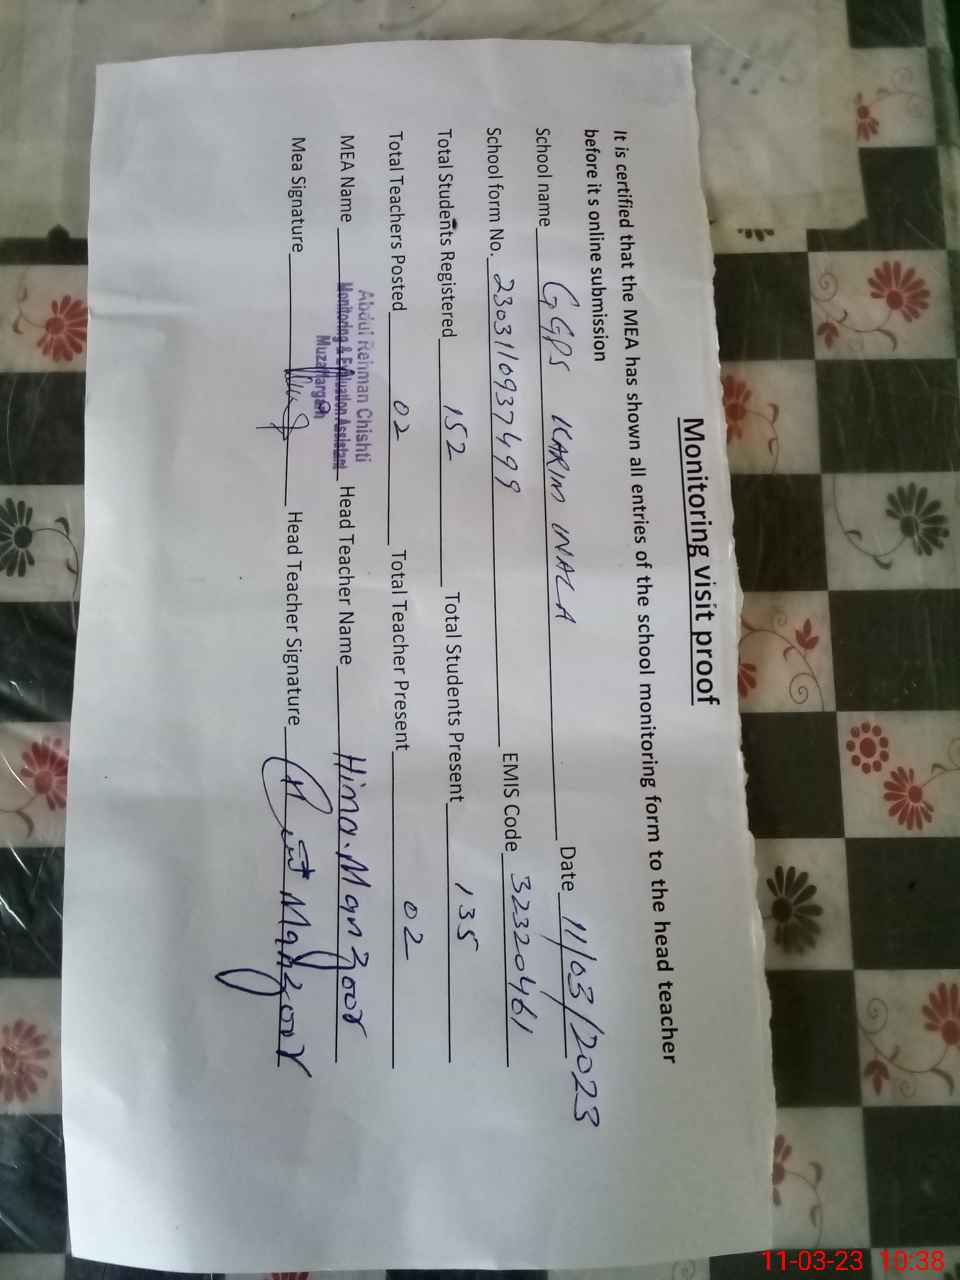 Monitoring visit proof
It is certified that the MEA has shown all entries of the school monitoring form to the head teacher
before it s online submission
School name GGPS KARIM WALA Date 11/03/2023
School form No. 2303110937499 EMIS Code 32320461
Total Students Registered 152 Total Students Present 135
Total Teachers Posted 02 Total Teacher Present 02
Abdul Rehman Chishti
MEA Name Monitoring & Evaluation Assistant Head Teacher Name Hina Manzoor
Muzaffargarh
Mea Signature Head Teacher Signature Manzoor
11-03-23 10:38